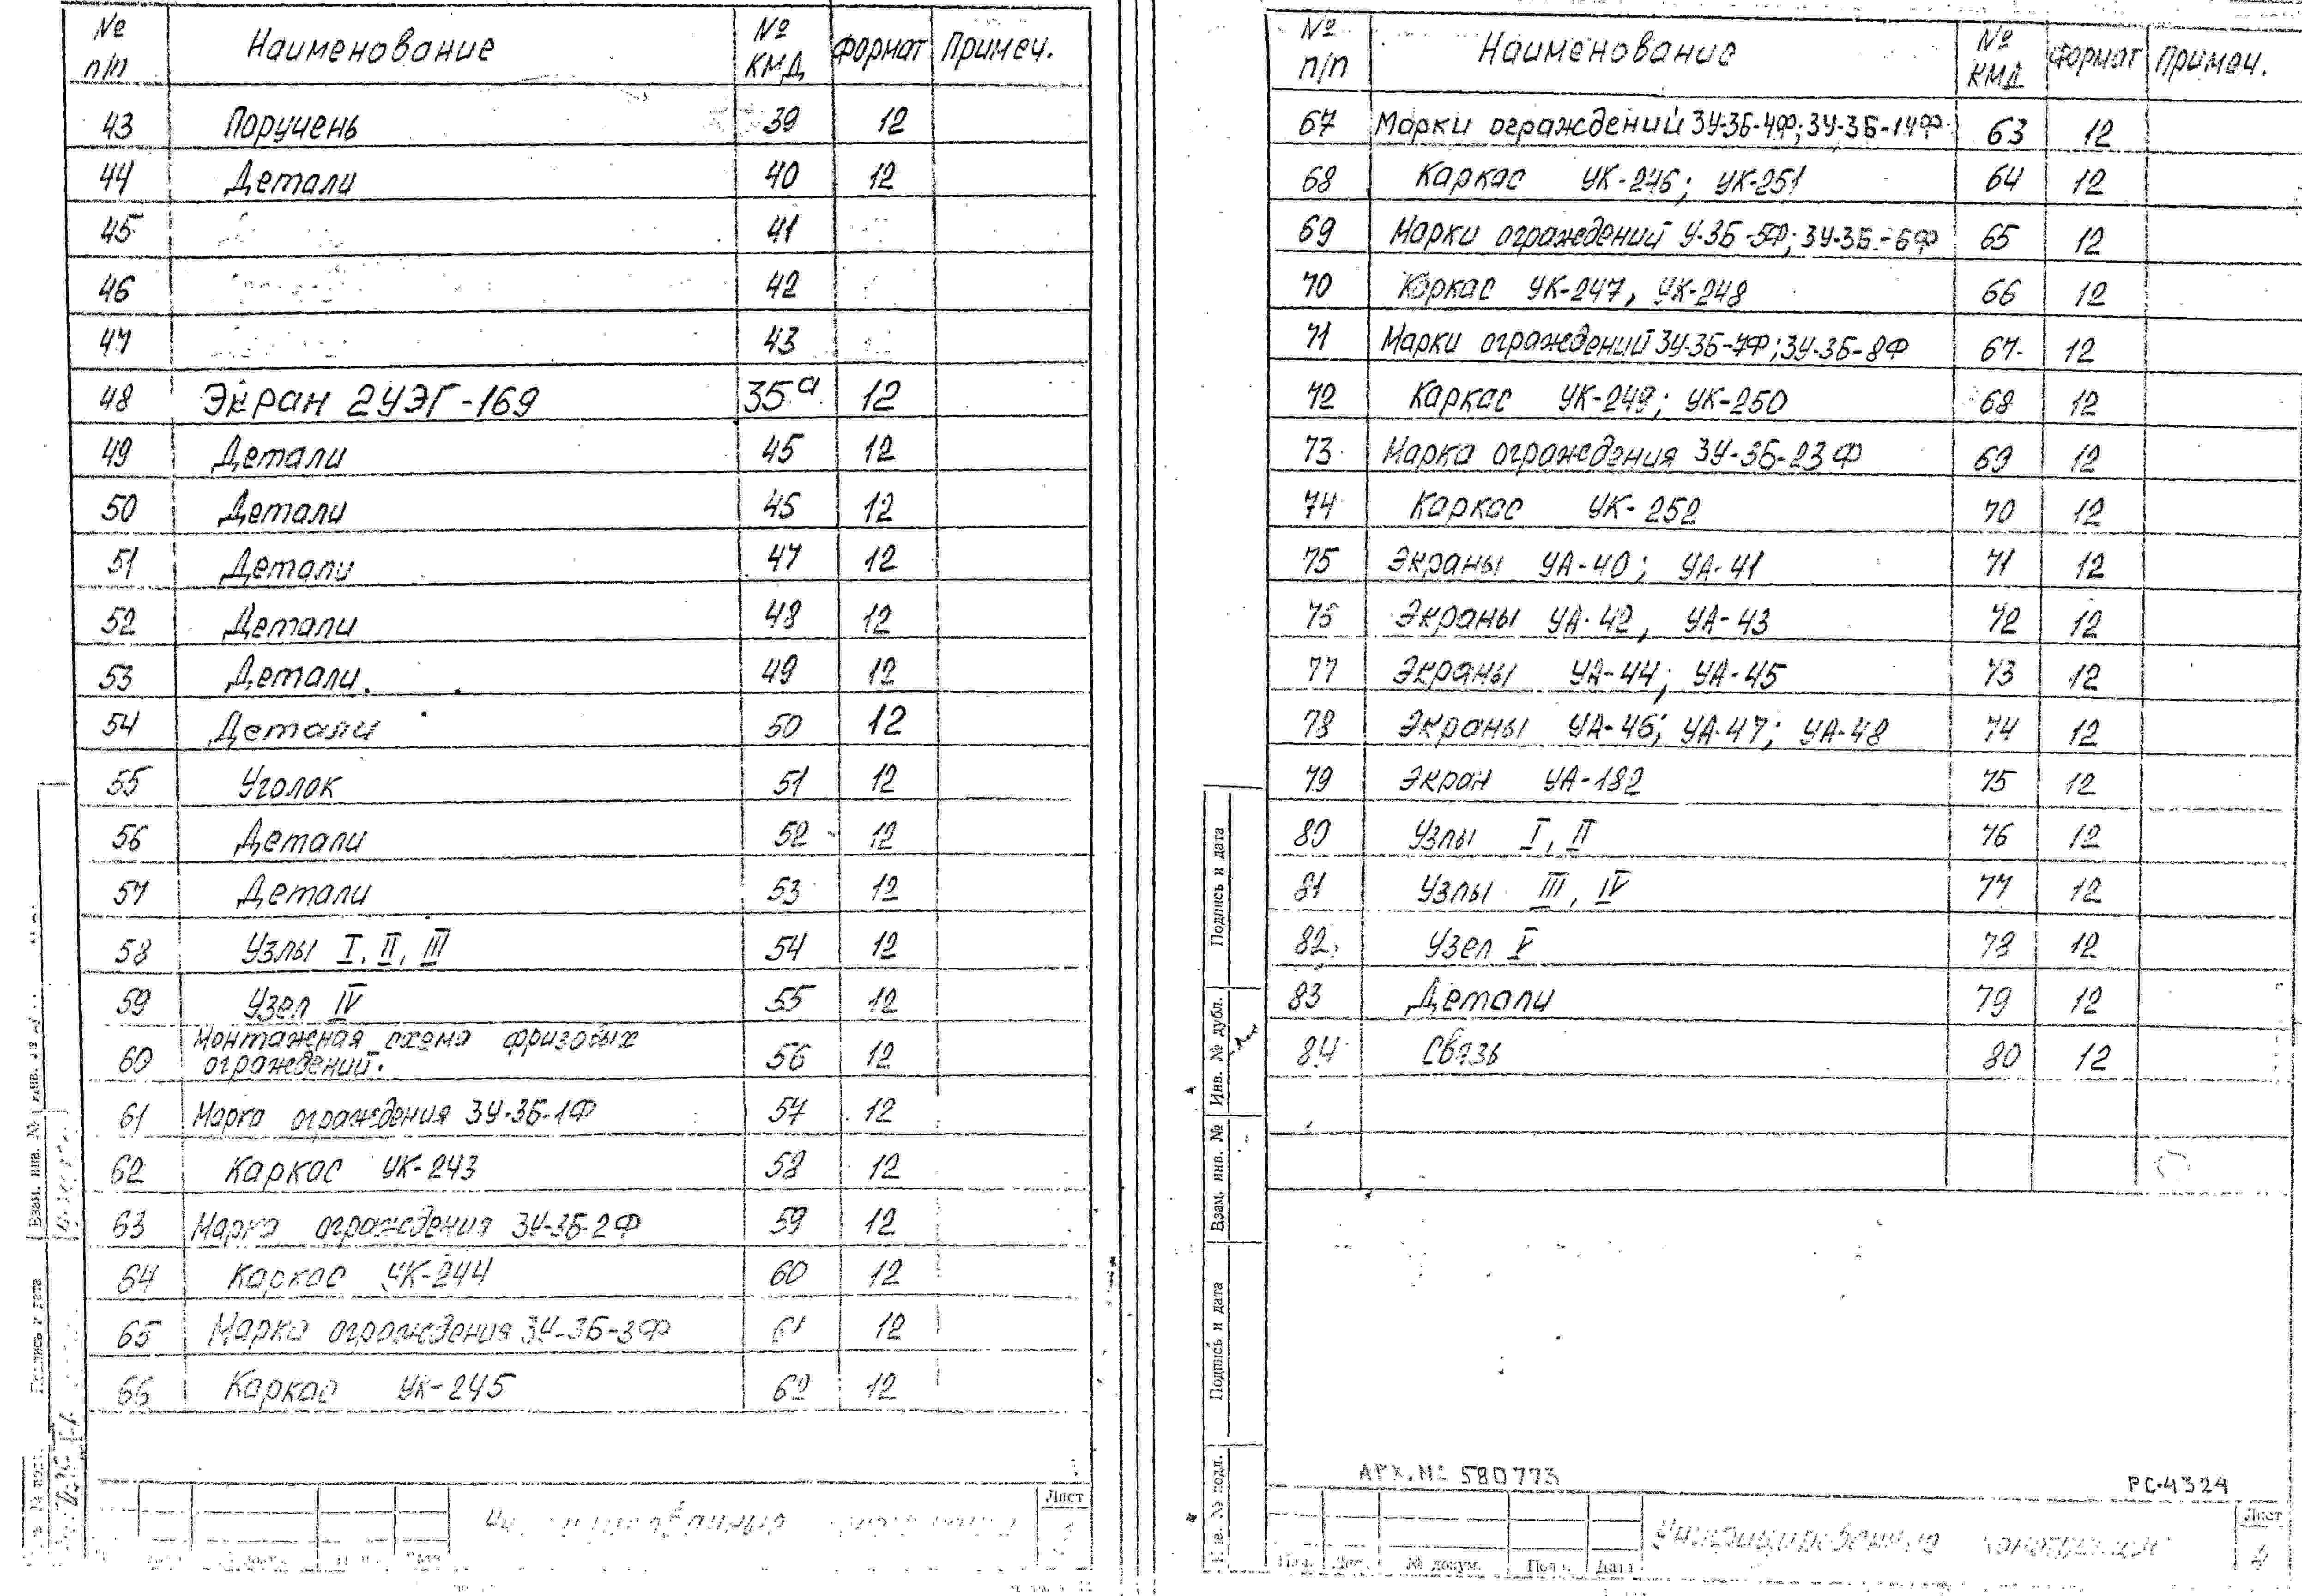 № п/п Наименование № КМД Формат Примеч.
43 Поручень 39 12
44 Детали 40 12
45 41
46 42
47 43
48 Экран 2УЭГ-169 35а 12
49 Детали 45 12
50 Детали 46 12
51 Детали 47 12
52 Детали 48 12
53 Детали. 49 12
54 Детали 50 12
55 Уголок 51 12
56 Детали 52 12
57 Детали 53 12
58 Узлы I, II, III 54 12
59 Узел IV 55 12
60 Монтажная схема фризовых
ограждений. 56 12
61 Марка ограждения 3У-3Б-1Ф 57 12
62 Каркас УК-243 58 12
63 Марка ограждения 3У-3Б-2Ф 59 12
64 Каркас УК-244 60 12
65 Марка ограждения 3У-3Б-3Ф 61 12
66 Каркас УК-245 62 12
Взам. инв. №
Лист
№ п/п Наименование № КМД Формат Примеч.
67 Марки ограждений 3У-3Б-4Ф; 3У-3Б-14Ф 63 12
68 Каркас УК-246; УК-251 64 12
69 Марки ограждений У-3Б-5Ф; 3У-3Б-6Ф 65 12
70 Каркас УК-247, УК-248 66 12
71 Марки ограждений 3У-3Б-7Ф; 3У-3Б-8Ф 67 12
72 Каркас УК-249; УК-250 68 12
73 Марка ограждения 3У-3Б-23Ф 69 12
74 Каркас УК-252 70 12
75 Экраны УА-40; УА-41 71 12
76 Экраны УА-42, УА-43 72 12
77 Экраны УА-44; УА-45 73 12
78 Экраны УА-46; УА-47; УА-48 74 12
79 Экран УА-182 75 12
80 Узлы I, II 76 12
81 Узлы III, IV 77 12
82 Узел V 78 12
83 Детали 79 12
84 Связь 80 12
Подпись и дата
Инв. № дубл.
Взам. инв. №
Подпись и дата
Инв. № подл.
АРХ. № 580773
РС-4324
№ докум. Подп. Дата
Унифицированные конструкции
Лист
4